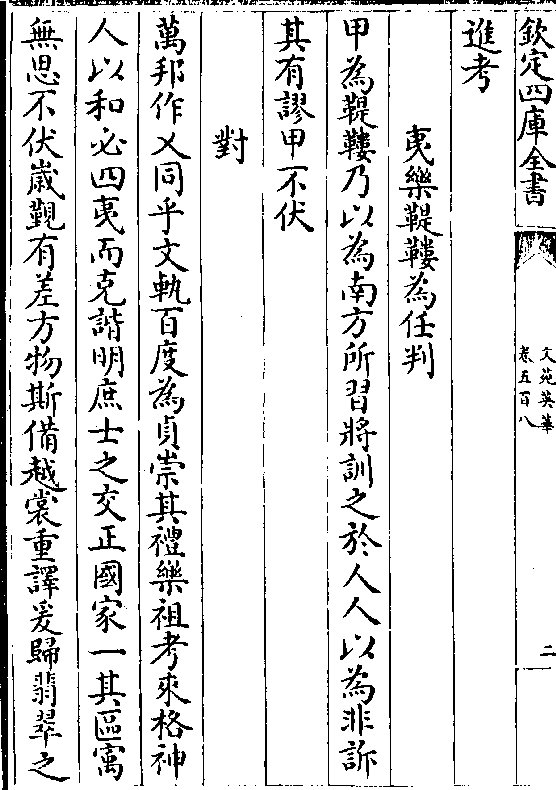 欽定四庫全書
文苑英華
卷五百八
二
進考
夷樂鞮鞻為任判
甲為鞮鞻乃以為南方所習將訓之於人人以為非訴
其有謬甲不伏
對
萬邦作乂同乎文軌百度為貞崇其禮樂祖考來格神
人以和必四夷而克諧明庶士之交正國家一其區寓
無思不伏歲觀有差方物斯備越裳重譯爰歸翡翠之